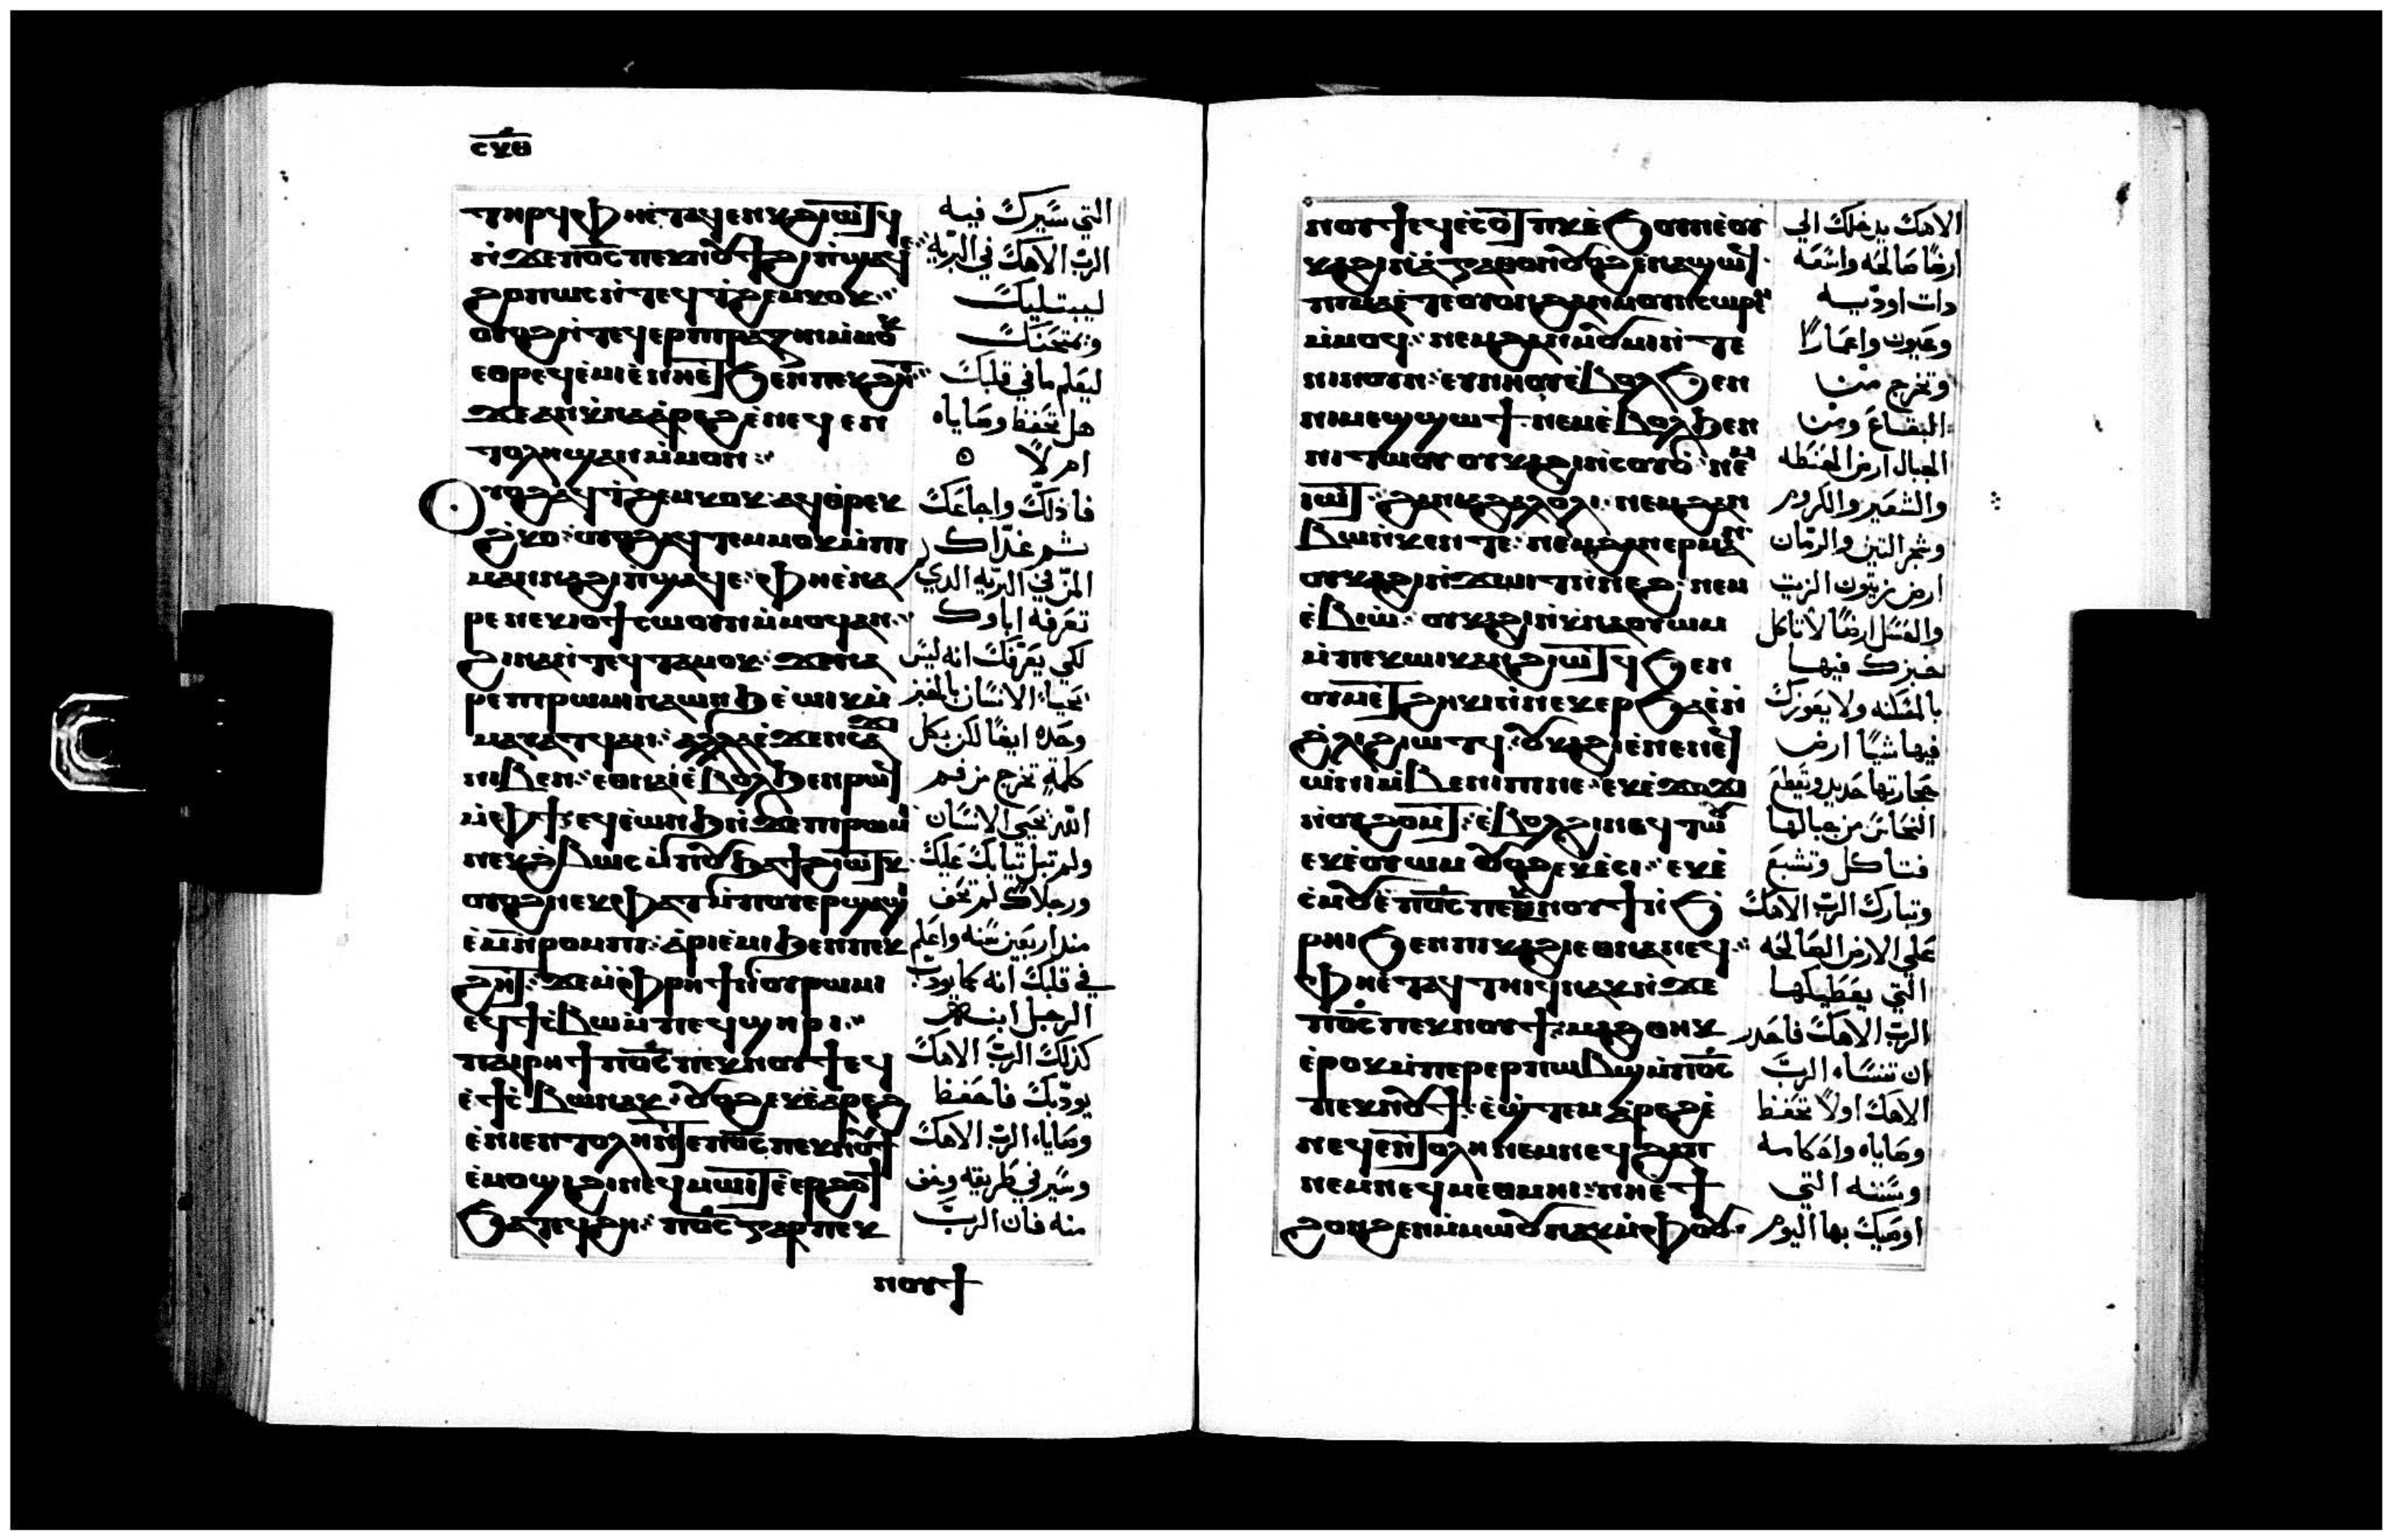 ⲥⲝⲑ
ⲧⲏⲣϥ ⲫⲏⲉⲧⲁϥⲉⲛⲕ ϩⲓⲱⲧϥ
ⲛϫⲉ ⲡⲟ̅ⲥ̅ ⲡⲉⲕⲛⲟⲩϯ ϩⲓ ⲡϣⲁϥⲉ
ϩⲟⲡⲱⲥ ⲛⲧⲉϥⲧϩⲉⲙⲕⲟⲕ
ⲟⲩⲟϩ ⲛⲧⲉϥⲉⲣⲡⲓⲣⲁⲍⲓⲛ ⲙⲙⲟⲕ
ⲉⲑⲣⲉϥⲉⲙⲓ ⲉⲛⲏⲉⲧϧⲉⲛ ⲡⲉⲕϩⲏⲧ
ϫⲉ ⲁⲛ ⲭⲛⲁⲁⲣⲉϩ ⲉⲛⲉϥⲉⲛ
ⲧⲟⲗⲏ ϣⲁⲛ ⲙⲙⲟⲛ
ⲟⲩⲟϩ ⲁϥⲧϩⲉⲙⲕⲟⲕ ⲁϥⲑⲣⲉⲕ
ϩⲕⲟ ⲟⲩⲟϩ ⲁϥⲧⲉⲙⲙⲟⲕ ⲙⲡⲓ
ⲙⲁⲛⲛⲁ ϩⲓ ⲡϣⲁϥⲉ ⲫⲏⲉⲛⲁ
ⲣⲉ ⲛⲉⲕⲓⲟϯ ⲥⲱⲟⲩⲛ ⲙⲙⲟϥ ⲁⲛ
ϩⲓⲛⲁ ⲛⲧⲉϥⲧⲁⲙⲟⲕ ϫⲉ ⲛⲁ
ⲣⲉ ⲡⲓⲣⲱⲙⲓ ⲛⲁⲱⲛϧ ⲉⲱⲓⲕ ⲙ
ⲙⲁⲩⲁⲧϥ ⲁⲛ ⲁⲗⲗⲁ ⲉϫⲉⲛ ⲥⲁϫⲓ
ⲛⲓⲃⲉⲛ ⲉⲑⲛⲏⲟⲩ ⲉⲃⲟⲗ ϧⲉⲛ ⲣⲱϥ
ⲙⲫϯ ⲉϥⲉⲱⲛϧ ⲛϫⲉ ⲡⲓⲣⲱⲙⲓ
ⲛⲉⲕϩⲃⲱⲥ ⲙⲡⲟⲩϧⲁϯ ϩⲓⲱⲧⲕ
ⲟⲩⲟϩ ⲛⲉⲕⲫⲁⲧ ⲙⲡⲟⲩⲉⲣϣⲱϣ
ⲉⲙ ⲛⲣⲟⲙⲡⲓ ⲁⲣⲓⲉⲙⲓ ϧⲉⲛ ⲡⲉⲕ
ϩⲏⲧ ϫⲉ ⲙⲫⲣⲏϯ ⲛⲟⲩⲣⲱⲙⲓ
ⲉϥϯⲥⲃⲱ ⲙⲡⲉϥϣⲏⲣⲓ
ⲡⲁⲓⲣⲏϯ ⲡⲟ̅ⲥ̅ ⲡⲉⲕⲛⲟⲩϯ ⲉϥ
ⲉϯⲥⲃⲱ ⲛⲁⲕ ⲟⲩⲟϩ ⲉⲕⲉⲁⲣⲉϩ
ⲉⲛⲓⲉⲛⲧⲟⲗⲏ ⲛⲧⲉ ⲡⲟ̅ⲥ̅ ⲡⲉⲕⲛⲟⲩϯ
ⲉⲙⲟϣⲓ ϩⲓ ⲛⲉϥⲙⲱⲓⲧ ⲉⲉⲣϩⲟϯ
ϧⲁⲧⲉϥϩⲏ ⲡⲟ̅ⲥ̅ ⲅⲁⲣ ⲡⲉⲕ
ⲛⲟⲩϯ
التي سيرك فيه
الرب الاهك في البريه
ليبتليك
ويمتحنك
ليعلم ما في قلبك
هل تحفظ وصاياه
ام لا
فاذلك واجاعك
ثم غذاك
المن في البريه الدي
تعرفه اباوك
لكي يعرفك انه ليس
يحيا الانسان بالخبز
وحده ايضا لكن بكل
كلمة تخرج من فم
الله يحيى الانسان
ولم تبل تيابك عليك
ورجلاك لم تحف
مند اربعين سنه واعلم
في قلبك انه كما يودب
الرجل ابنه
كذلك الرب الاهك
يودبك فاحفظ
وصاياه الرب الاهك
وسير في طريقه وخف
منه فان الرب
ⲛⲟⲩϯ ⲉϥⲉⲟⲗⲕ ⲉϧⲟⲩⲛ ⲉⲟⲩ
ⲕⲁϩⲓ ⲛⲁⲅⲁⲑⲟⲛ ⲟⲩⲟϩ ⲉⲛⲁϣⲱϥ
ⲡⲓⲙⲁ ⲉⲧⲉ ⲟⲩⲟⲛ ϩⲁⲛⲙⲟⲩⲛⲥⲱⲣⲉⲙ
ⲙⲙⲟϥ ⲛⲉⲙ ϩⲁⲛⲙⲟⲩⲙⲓ ⲛⲧⲉ
ⲛⲓⲛⲟⲩⲛ ⲉⲩⲛⲏⲟⲩ ⲉⲃⲟⲗ ϧⲉⲛ
ⲛⲓⲙⲉϣϣⲱϯ ⲛⲉⲙ ⲉⲃⲟⲗ ϧⲉⲛ
ⲛⲓⲧⲱⲟⲩ ⲟⲩⲕⲁϩⲓ ⲛⲥⲟⲩⲟ ⲛⲉⲙ
ⲓⲱⲧ ϩⲁⲛⲁϩⲁⲗⲟⲗⲓ ⲛⲉⲙ ϩⲁⲛ
ⲃⲱ ⲛⲕⲉⲛⲧⲉ ⲛⲉⲙ ϩⲁⲛⲉⲣⲙⲁⲛ
ⲟⲩⲕⲁϩⲓ ⲛϫⲱⲓⲧ ⲛⲛⲉϩ ⲛⲉⲙ
ⲉⲃⲓⲱ ⲟⲩⲕⲁϩⲓ ⲛⲭⲛⲁⲟⲩⲱⲙ
ⲙⲡⲉⲕⲱⲓⲕ ⲁⲛ ϩⲓⲱⲧϥ ϧⲉⲛ
ⲟⲩⲙⲉⲧϩⲏⲕⲓ ⲛⲛⲉⲕⲉⲣϧⲁⲉ ⲛ
ϩⲗⲓ ϩⲓⲱⲧϥ ⲟⲩⲕⲁϩⲓ ⲉⲛⲉⲛⲉϥ
ⲱⲛⲓ ⲙⲃⲉⲛⲓⲡⲓ ⲛⲉ ⲉⲕⲉϫⲱϫⲓ
ⲛⲟⲩϩⲟⲙⲧ ⲉⲃⲟⲗ ϩⲓ ⲛⲉϥⲧⲱⲟⲩ
ⲉⲕⲉⲟⲩⲱⲙ ⲟⲩⲟϩ ⲉⲕⲉⲥⲓ ⲉⲕⲉ
ⲥⲙⲟⲩ ⲉⲡⲟ̅ⲥ̅ ⲡⲉⲕⲛⲟⲩϯ ⲛϧ
ⲣⲏⲓ ϧⲉⲛ ⲡⲓⲕⲁϩⲓ ⲉⲑⲛⲁⲛⲉϥ
ⲫⲏⲉⲧⲁϥⲧⲏⲓϥ ⲛⲁⲕ ⲛϫⲉ
ⲡⲟ̅ⲥ̅ ⲡⲉⲕⲛⲟⲩϯ ⲙⲁϩⲑⲏⲕ
ⲉⲣⲟⲕ ⲙⲡⲉⲣⲉⲣⲡⲱⲃϣ ⲙⲡⲟ̅ⲥ̅
ⲡⲉⲕⲛⲟⲩϯ ⲉϣⲧⲉⲙⲁⲣⲉϩ ⲉ
ⲛⲉϥⲉⲛⲧⲟⲗⲏ ⲛⲉⲙ ⲛⲉϥϩⲁⲡ
ⲛⲉⲙ ⲛⲉϥⲙⲉⲑⲙⲏⲓ ⲛⲏⲉϯ
ϩⲟⲛϩⲉⲛ ⲙⲙⲱⲟⲩ ⲛⲁⲕ ⲙⲫⲟⲟⲩ
الاهك يدخلك الي
ارضا صالحه واسعه
دات اوديه
وعيون واغمارا
وتخرج من
البقاع ومن
الجبال ارض الحنطه
والشعير والكروم
وشجر التين والرمان
ارض زيتون الزيت
والعسل ارضا لا تاكل
خبزك فيها
بالمسكنه ولا يعوزك
فيها شيا ارض
حجارتها حديد وتقطع
النحاس من جبالها
فتاكل وتشبع
وتبارك الرب الاهك
علي الارض الصالحه
التي يعطيكها
الرب الاهك فاحدر
ان تنسا الرب
الاهك اولا تحفظ
وصاياه واحكامه
وسننه التي
اوصيك بها اليوم